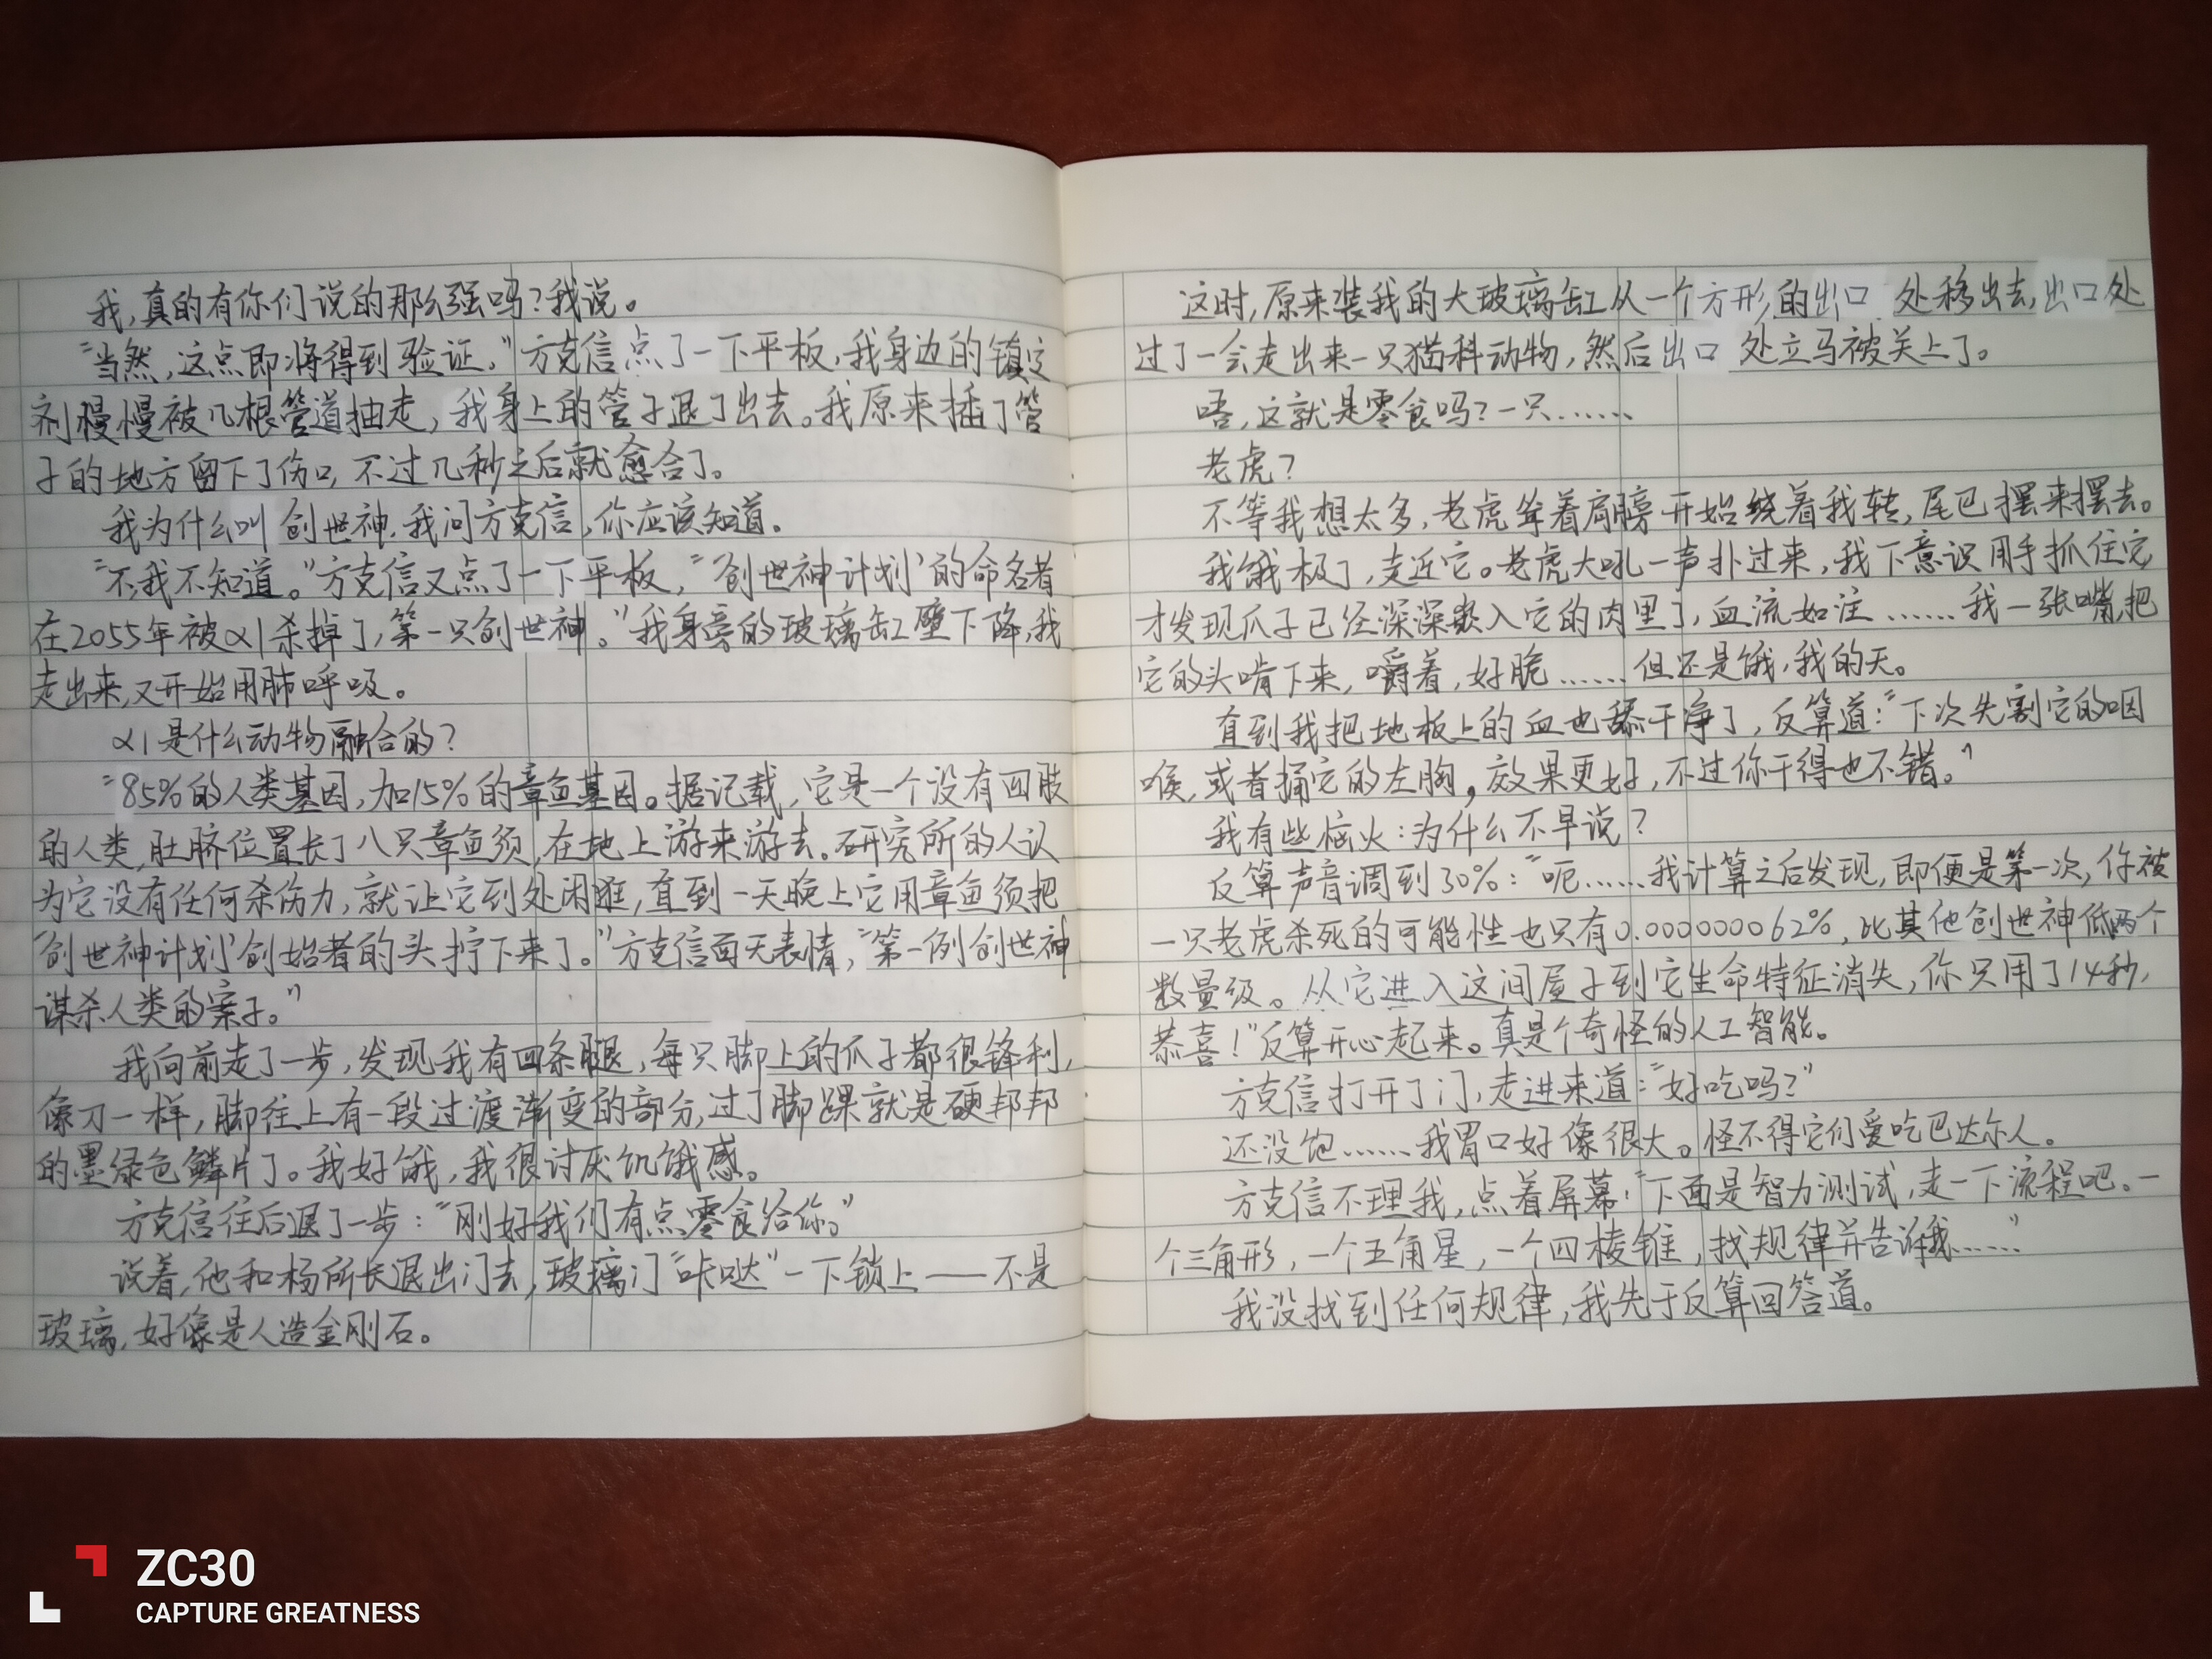 我,真的有你们说的那么强吗?我说。
“当然,这点即将得到验证。”方克信点了一下平板,我身边的镇定
剂慢慢被几根管道抽走,我身上的管子退了出去。我原来插了管
子的地方留下了伤口,不过几秒之后就愈合了。
我为什么叫创世神.我问方克信,你应该知道。
“不,我不知道。”方克信又点了一下平板,“‘创世神计划’的命名者
在2055年被α1杀掉了,第一只创世神。”我身旁的玻璃缸壁下降,我
走出来,又开始用肺呼吸。
α1是什么动物融合的?
“85%的人类基因,加15%的章鱼基因。据记载,它是一个没有四肢
的人类,肚脐位置长了八只章鱼须,在地上游来游去。研究所的人认
为它没有任何杀伤力,就让它到处闲逛,直到一天晚上它用章鱼须把
‘创世神计划’创始者的头拧下来了。”方克信面无表情,“第一例创世神
谋杀人类的案子。”
我向前走了一步,发现我有四条腿,每只脚上的爪子都很锋利,
像刀一样,脚往上有一段过渡渐变的部分,过了脚踝就是硬邦邦
的墨绿色鳞片了。我好饿,我很讨厌饥饿感。
方克信往后退了一步:“刚好我们有点零食给你。”
说着,他和杨所长退出门去,玻璃门“咔哒”一下锁上——不是
玻璃,好像是人造金刚石。
这时,原来装我的大玻璃缸从一个方形的出口处移出去,出口处
过了一会走出来一只猫科动物,然后出口处立马被关上了。
唔,这就是零食吗?一只……
老虎?
不等我想太多,老虎耸着肩膀开始绕着我转,尾巴摆来摆去。
我饿极了,走近它。老虎大吼一声扑过来,我下意识用手抓住它,
才发现爪子已经深深嵌入它的肉里了,血流如注……我一张嘴,把
它的头啃下来,嚼着,好脆……但还是饿,我的天。
直到我把地板上的血也舔干净了,反算道:“下次先割它的咽
喉,或者捅它的左胸,效果更好,不过你干得也不错。”
我有些恼火:为什么不早说?
反算声音调到30%:“呃……我计算之后发现,即便是第一次,你被
一只老虎杀死的可能性也只有0.000000062%,比其他创世神低两个
数量级。从它进入这间屋子到它生命特征消失,你只用了14秒,
恭喜!”反算开心起来。真是个奇怪的人工智能。
方克信打开了门,走进来道:“好吃吗?”
还没饱……我胃口好像很大。怪不得它们爱吃巴达尔人。
方克信不理我,点着屏幕:“下面是智力测试,走一下流程吧。一
个三角形,一个五角星,一个四棱锥,找规律并告诉我……”
我没找到任何规律,我先于反算回答道。
ZC30
CAPTURE GREATNESS